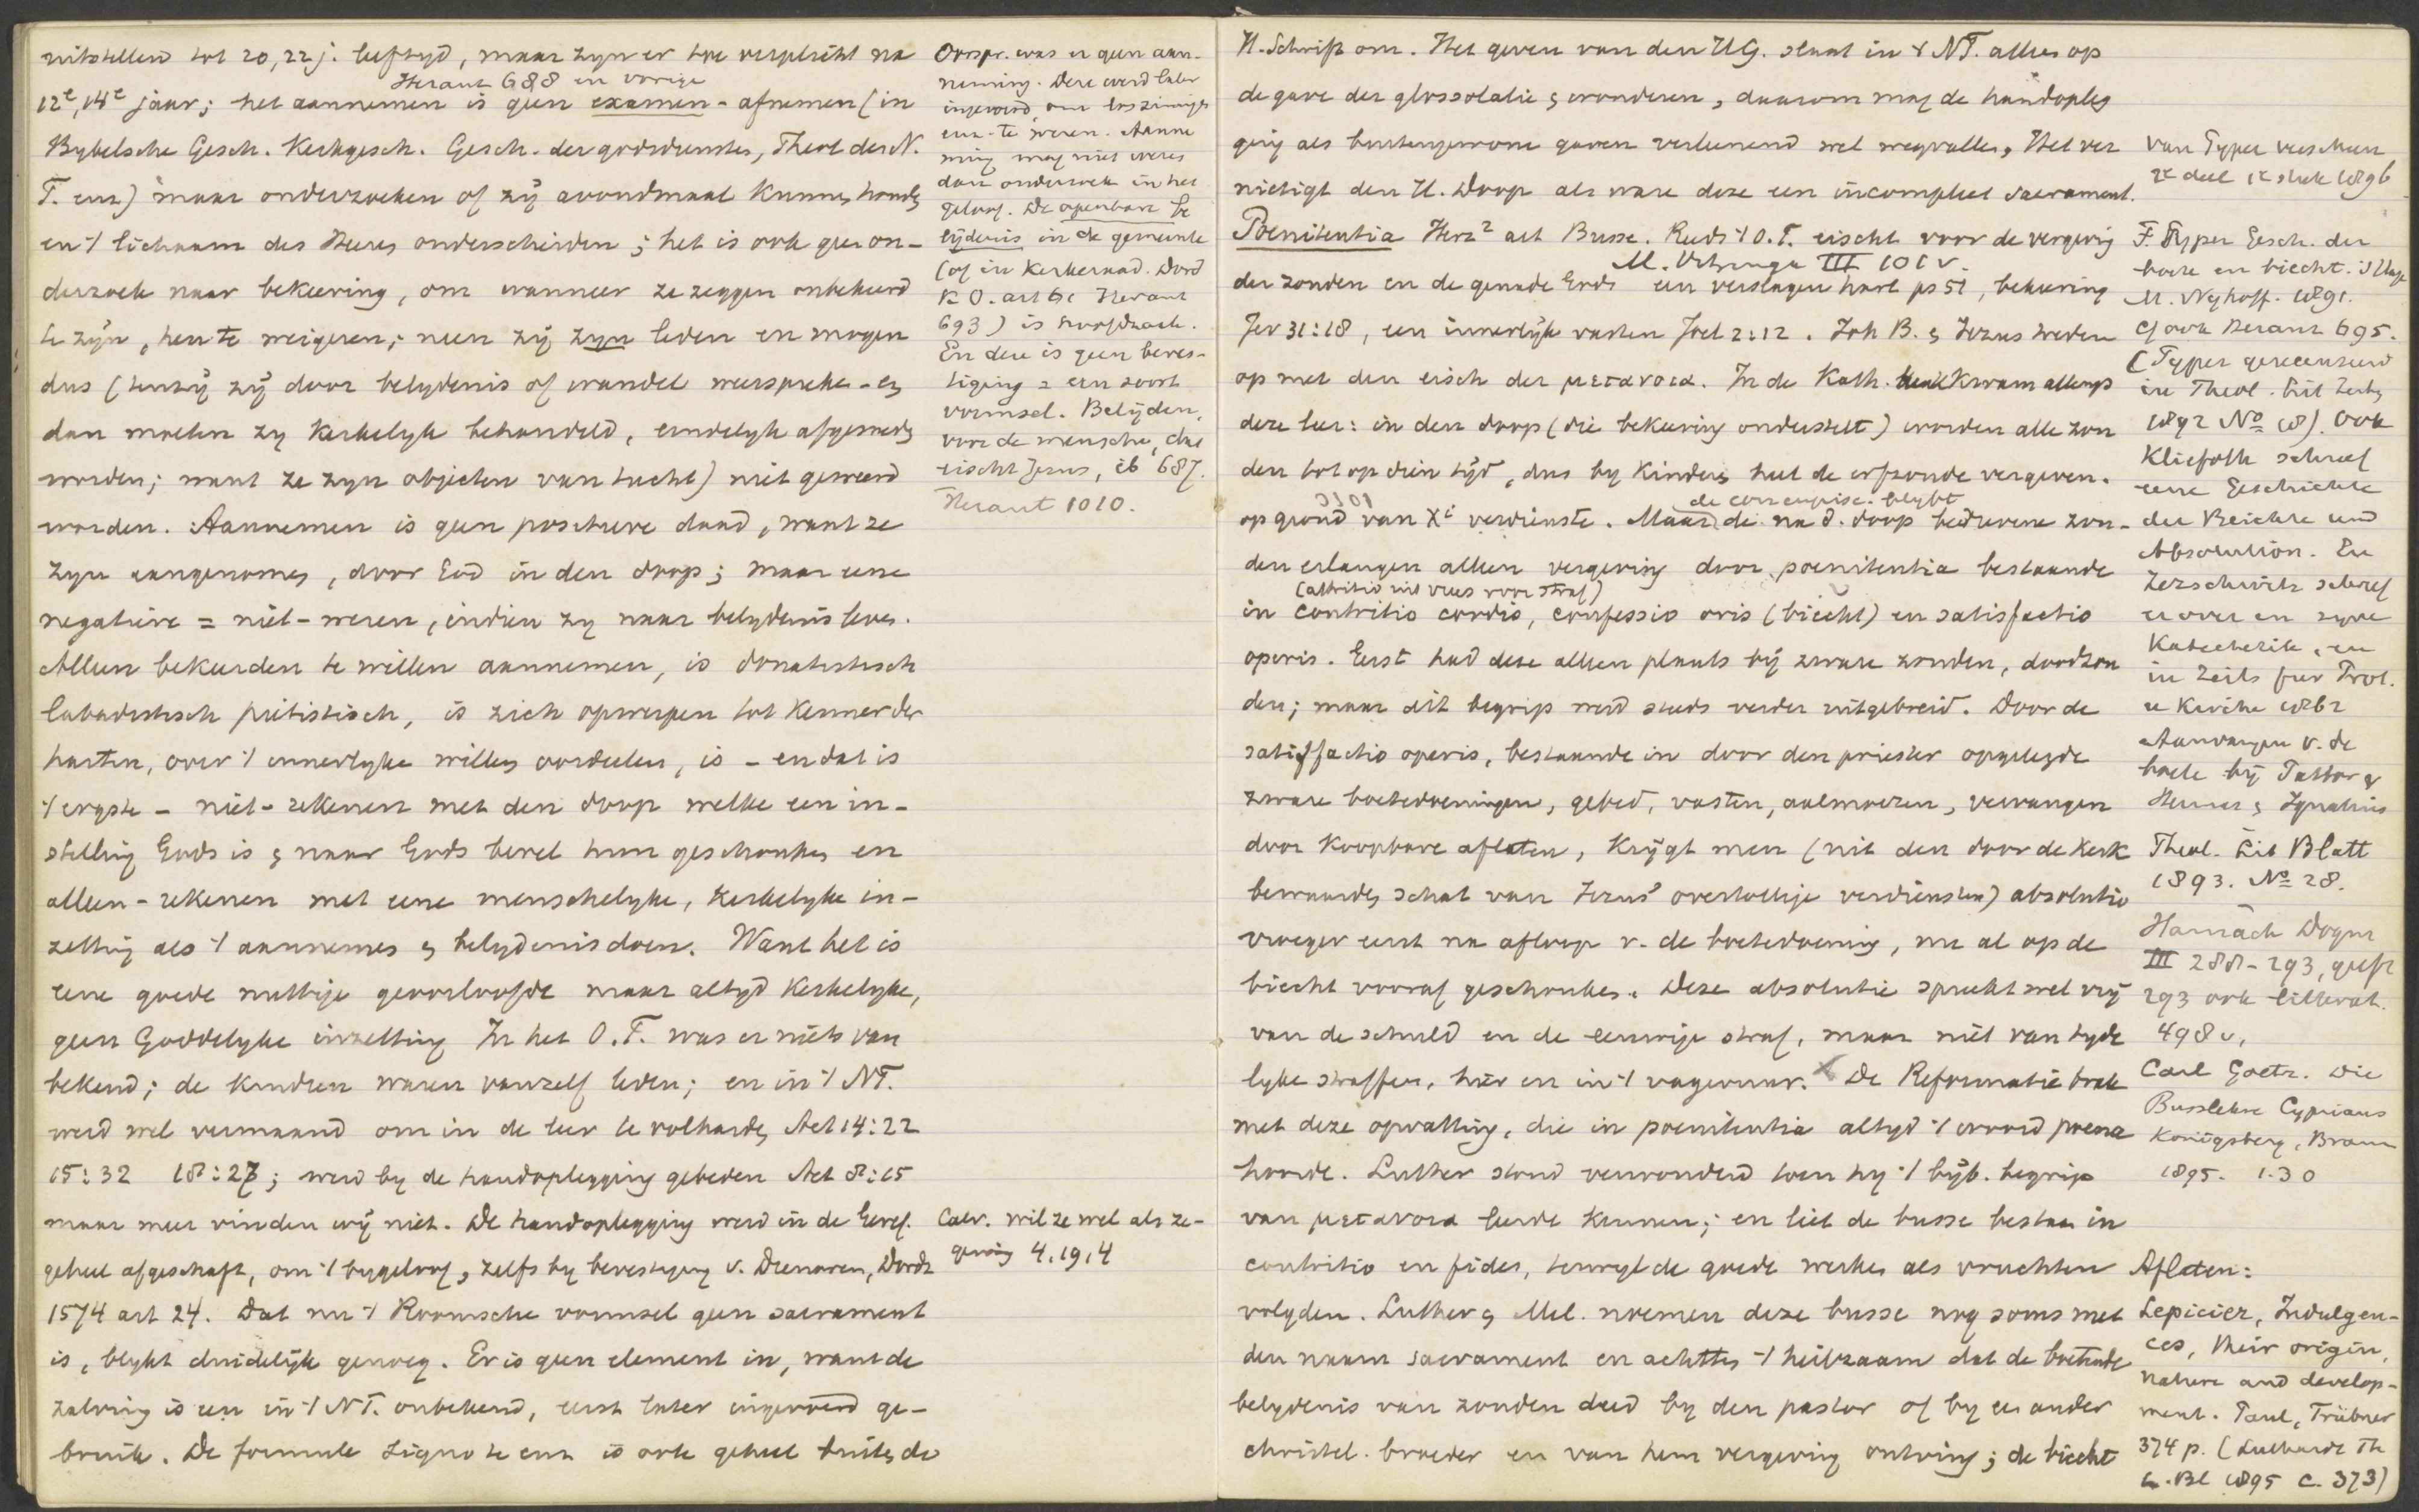 uitstellen tot 20, 22 j. leeftyd, maar zyn er toe verplicht na
Heraut 688 en vorige
12e, 14e jaar; het aannemen is geen examen-afnemen (in
Bybelsche Gesch. Kerkgesch. Gesch. der godsdiensten, Theol des N.
T. enz) maar onderzoeken of zij avondmaal kunnen houden
en 't lichaam des Heeren onderscheiden; het is ook geen on-
derzoek naar bekeering, om wanneer ze zeggen onbekeerd
te zijn, hen te weigeren; neen zij zyn leden en mogen
dus (tenzij zij door belydenis of wandel weerspreken - en
dan moeten zy kerkelyk behandeld, eindelyk afgesneden
worden; want ze zyn objecten van tucht) niet geweerd
worden. Aannemen is geen positieve daad, want ze
zyn aangenomen, door God in den doop; maar eene
negatieve = niet-weren, indien zy naar belydenis leven.
Alleen bekeerden te willen aannemen, is donatistisch
labadistisch piëtistisch, is zich opwerpen tot kenner der
harten, over 't innerlyke willen oordeelen, is - en dat is
't ergste - niet-rekenen met den doop welke een in-
stelling Gods is en naar Gods bevel hun geschonken en
alleen-rekenen met eene menschelyke, kerkelyke in-
zetting als 't aannemen en belydenis doen. Want het is
eene goede nuttige geoorloofde maar altyd kerkelyke,
geen Goddelyke inzetting In het O.T. was er niets van
bekend; de kinderen waren vanzelf leden; en in 't NT.
werd wel vermaand om in de leer te volharden Act 14:22
15:32 18:27; werd by de handoplegging gebeden Act 8:15
maar meer vinden wij niet. De handoplegging werd in de Geref.
geheel afgeschaft, om 't bygeloof, zelfs by bevestiging v. Dienaren, Dordt
1574 art 24. Dat nu 't Roomsche vormsel geen sacrament
is, blykt duidelijk genoeg. Er is geen element in, want de
zalving is een in 't NT. onbekend, eerst later ingevoerd ge-
bruik. De formule signo te enz is ook geheel buiten de
Oorspr. was er geen aan-
neming. Deze werd later
ingevoerd, om loszinnigen
enz - te weren. Aanne
ming mag niet wezen
dan onderzoek in het
geloof. De openbare be
lijdenis in de gemeente
(of in Kerkeraad. Dord
K O. art 61 Heraut
693) is hoofdzaak.
En deze is geen beves-
tiging = een soort
vormsel. Belijden,
voor de menschen, dat
eischt Jezus, ib 687.
Heraut 1010.
Calv. wil ze wel als ze-
gening 4,19,4
H. Schrift om. Het geven van den HG. slaat in 't NT. alleen op
de gave der glossolalie en wonderen, daarom mag de handopleg
ging als buitengewone gaven verleenend wel wegvallen, Het ver
nietigt den H. Doop als ware deze een incompleet sacrament.
Poenitentia Herz² art Busse. Reeds 't O.T. eischt voor de vergeving
M. Vitringa III 101 v.
der zonden en de genade Gods een verslagen hart ps 51, bekeering
Jer 31:18, een innerlijk vasten Joel 2:12. Joh B. en Jezus treden
op met den eisch der μετανοια. In de Kath. kerk kwam allengs
deze leer: in den doop (die bekeering onderstelt) worden alle zon
den tot op dien tijd, dus by kinderen heel de erfzonde vergeven.
de concupisc. blyft
op grond van Xi verdienste. Maar de na d. doop bedrevene zon-
den erlangen alleen vergeving door poenitentia bestaande
(attritio uit vrees voor straf)
in contritio cordis, confessio oris (biecht) en satisfactio
operis. Eerst had deze alleen plaats bij zware zonden, doodzon
den; maar dit begrip werd steeds verder uitgebreid. Door de
satisfactio operis, bestaande in door den priester opgelegde
zware boetedoeningen, gebed, vasten, aalmoezen, vervangen
door koopbare aflaten, krijgt men (uit den door de kerk
bewaarden schat van Jezus' overtollige verdiensten) absolutio
vroeger eerst na afloop v. de boetedoening, nu al op de
biecht vooraf geschonken. Deze absolutie spreekt wel vrij
van de schuld en de eeuwige straf, maar niet van tyde
lyke straffen, hier en in 't vagevuur. De Reformatie brak
met deze opvatting, die in poenitentia altyd 't woord poena
hoorde. Luther stond verwonderd toen hy 't bijb. begrip
van μετανοια leerde kennen; en liet de busse bestaan in
contritio en fides, terwyl de goede werken als vruchten
volgden. Luther en Mel. noemen deze busse nog soms met
den naam sacrament en achtten 't heilzaam dat de boetende
belydenis van zonden deed by den pastor of by een ander
christel. broeder en van hem vergeving ontving; de biecht
van Pyper verscheen
2e deel 1e stuk 1896
F. Pyper Gesch. der
boete en biecht. 's Hage
M. Nyhoff. 1891.
cf ook Heraut 695.
(Pyper gerecenseerd
in Theol. Lit Zeitg
1892 No 18). Ook
Kliefoth schreef
eene Geschichte
der Beichte und
Absolution. En
Zezschwitz schreef
er over in zyne
Katechetik, en
in Zeits fur Prot.
u Kirche 1862
Aanvangen v. de
boete bij Pastor v
Hermas en Ignatius
Theol. Lit Blatt
1893. No 28.
Harnack Dogm
III 288-293, geeft
293 ook litterat.
498 v,
Carl Goetz. Die
Busslehre Cyprians
Konigsberg, Braun
1895. 1.30
Aflaten:
Lepicier, Indulgen-
ces, their origin,
nature and develop-
ment. Paul, Trübner
374 p. (Luthardt Th
L. Bl 1895 c. 373)